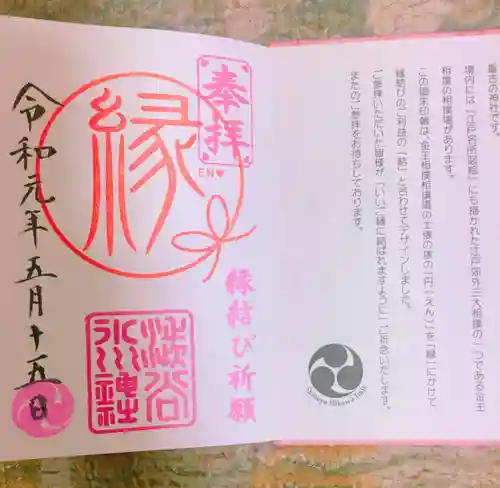 最古の神社です。
境内には「江戸名所図絵」にも描かれた江戸郊外三大相撲の一つである金王
相撲の相撲場があります。
この御朱印帳は、金王相撲相撲場の土俵の康の「円(えん)」を「縁」にかけて
縁結びのご利益の「結」と合わせてデザインしました。
ご参拝いただいた皆様が「いいご縁に結ばれますように」ご祈念いたします。
またのご参拝をお待ちしております。
Shibuya Hikawa Jinja
奉拝
EN♥
縁
縁結び祈願
渋谷
氷川神社
令和元年五月十五日